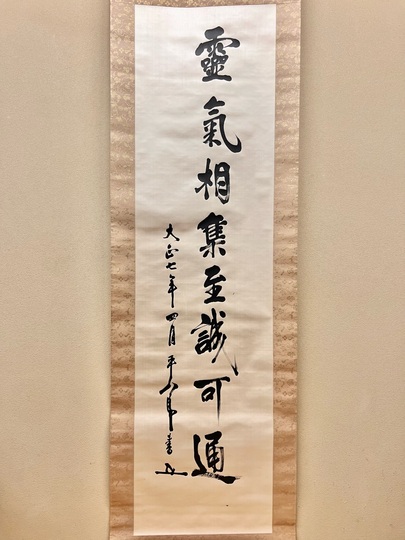 靈氣相集至誠可通
大正七年四月平八郎書